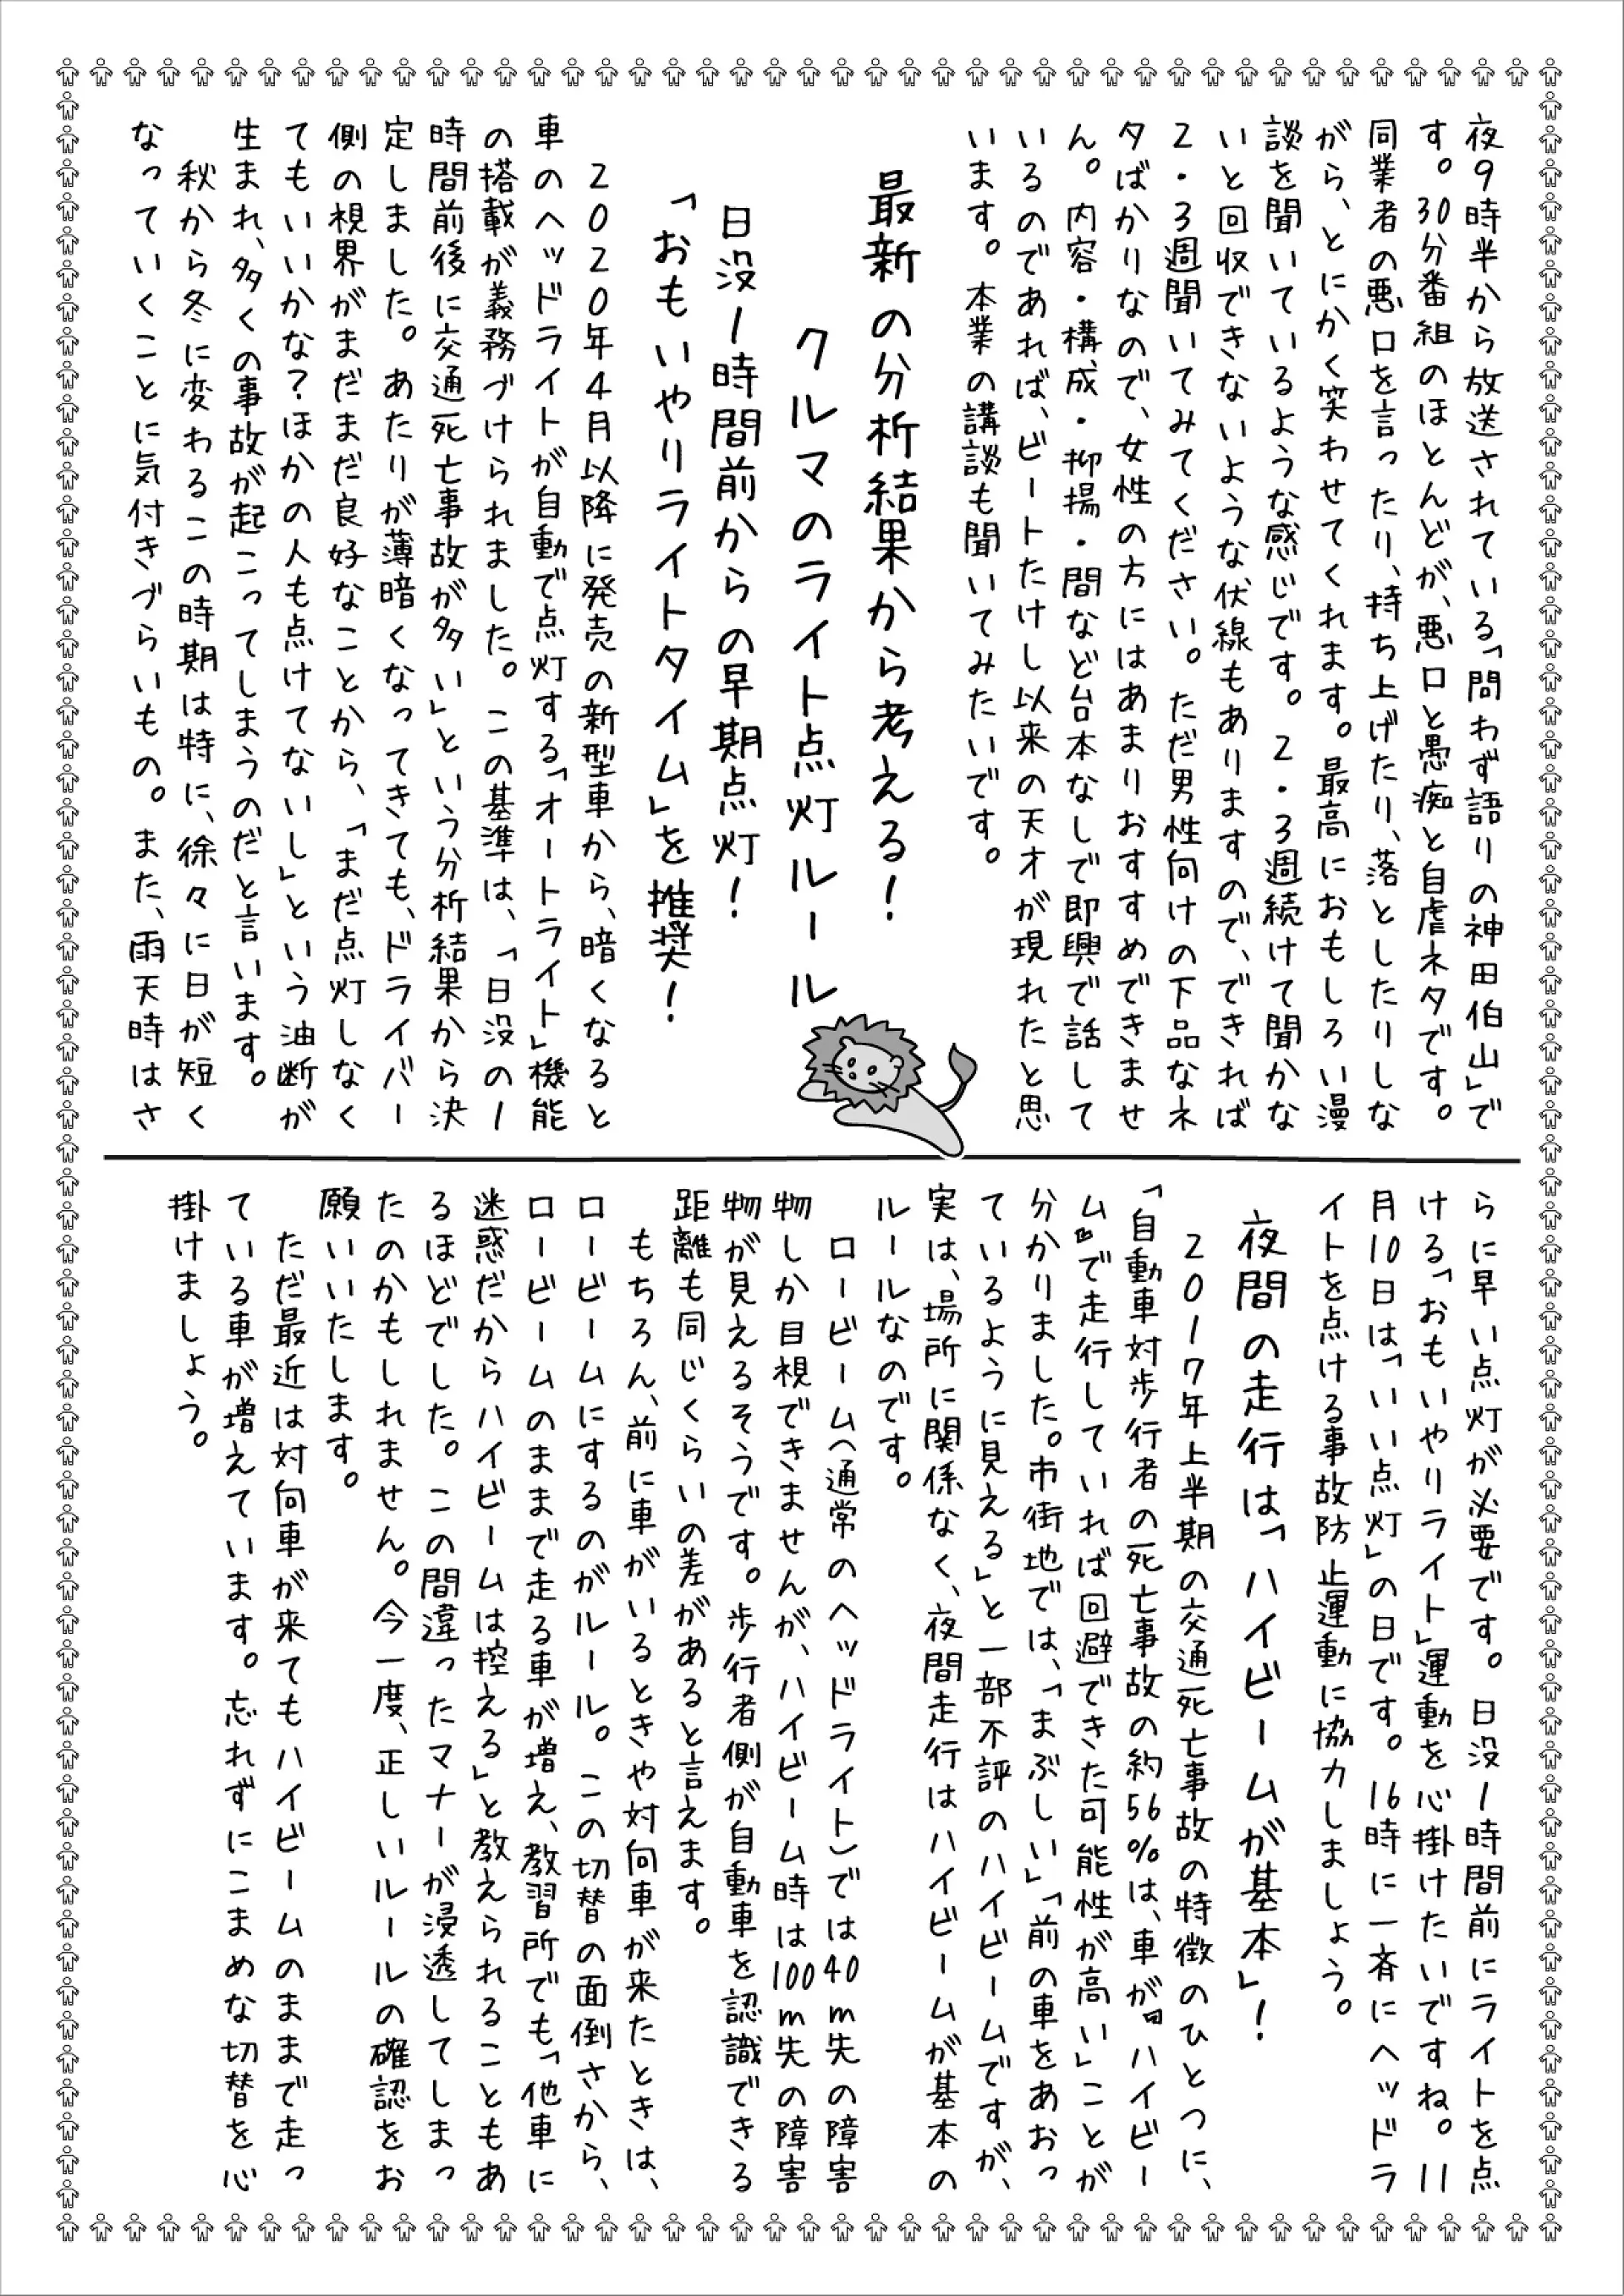 夜9時半から放送されている「問わず語りの神田伯山」で
す。30分番組のほとんどが、悪口と愚痴と自虐ネタです。
同業者の悪口を言ったり、持ち上げたり、落としたりしな
がら、とにかく笑わせてくれます。最高におもしろい漫
談を聞いているような感じです。2・3週続けて聞かな
いと回収できないような伏線もありますので、できれば
2・3週聞いてみてください。ただ男性向けの下品なネ
タばかりなので、女性の方にはあまりおすすめできませ
ん。内容・構成・抑揚・間など台本なしで即興で話して
いるのであれば、ビートたけし以来の天才が現れたと思
います。本業の講談も聞いてみたいです。
最新の分析結果から考える!
クルマのライト点灯ルール
日没1時間前からの早期点灯!
「おもいやりライトタイム」を推奨!
2020年4月以降に発売の新型車から、暗くなると
車のヘッドライトが自動で点灯する「オートライト」機能
の搭載が義務づけられました。この基準は、「日没の1
時間前後に交通死亡事故が多い」という分析結果から決
定しました。あたりが薄暗くなってきても、ドライバー
側の視界がまだまだ良好なことから、「まだ点灯しなく
てもいいかな?ほかの人も点けてないし」という油断が
生まれ、多くの事故が起こってしまうのだと言います。
秋から冬に変わるこの時期は特に、徐々に日が短く
なっていくことに気付きづらいもの。また、雨天時はさ
らに早い点灯が必要です。日没1時間前にライトを点
ける「おもいやりライト」運動を心掛けたいですね。11
月10日は「いい点灯」の日です。16時に一斉にヘッドラ
イトを点ける事故防止運動に協力しましょう。
夜間の走行は「ハイビームが基本」!
2017年上半期の交通死亡事故の特徴のひとつに、
「自動車対歩行者の死亡事故の約56%は、車が『ハイビー
ム』で走行していれば回避できた可能性が高い」ことが
分かりました。市街地では、「まぶしい」「前の車をあおっ
ているように見える」と一部不評のハイビームですが、
実は、場所に関係なく、夜間走行はハイビームが基本の
ルールなのです。
ロービーム(通常のヘッドライト)では40m先の障害
物しか目視できませんが、ハイビーム時は100m先の障害
物が見えるそうです。歩行者側が自動車を認識できる
距離も同じくらいの差があると言えます。
もちろん、前に車がいるときや対向車が来たときは、
ロービームにするのがルール。この切替の面倒さから、
ロービームのままで走る車が増え、教習所でも「他車に
迷惑だからハイビームは控える」と教えられることもあ
るほどでした。この間違ったマナーが浸透してしまっ
たのかもしれません。今一度、正しいルールの確認をお
願いいたします。
ただ最近は対向車が来てもハイビームのままで走っ
ている車が増えています。忘れずにこまめな切替を心
掛けましょう。